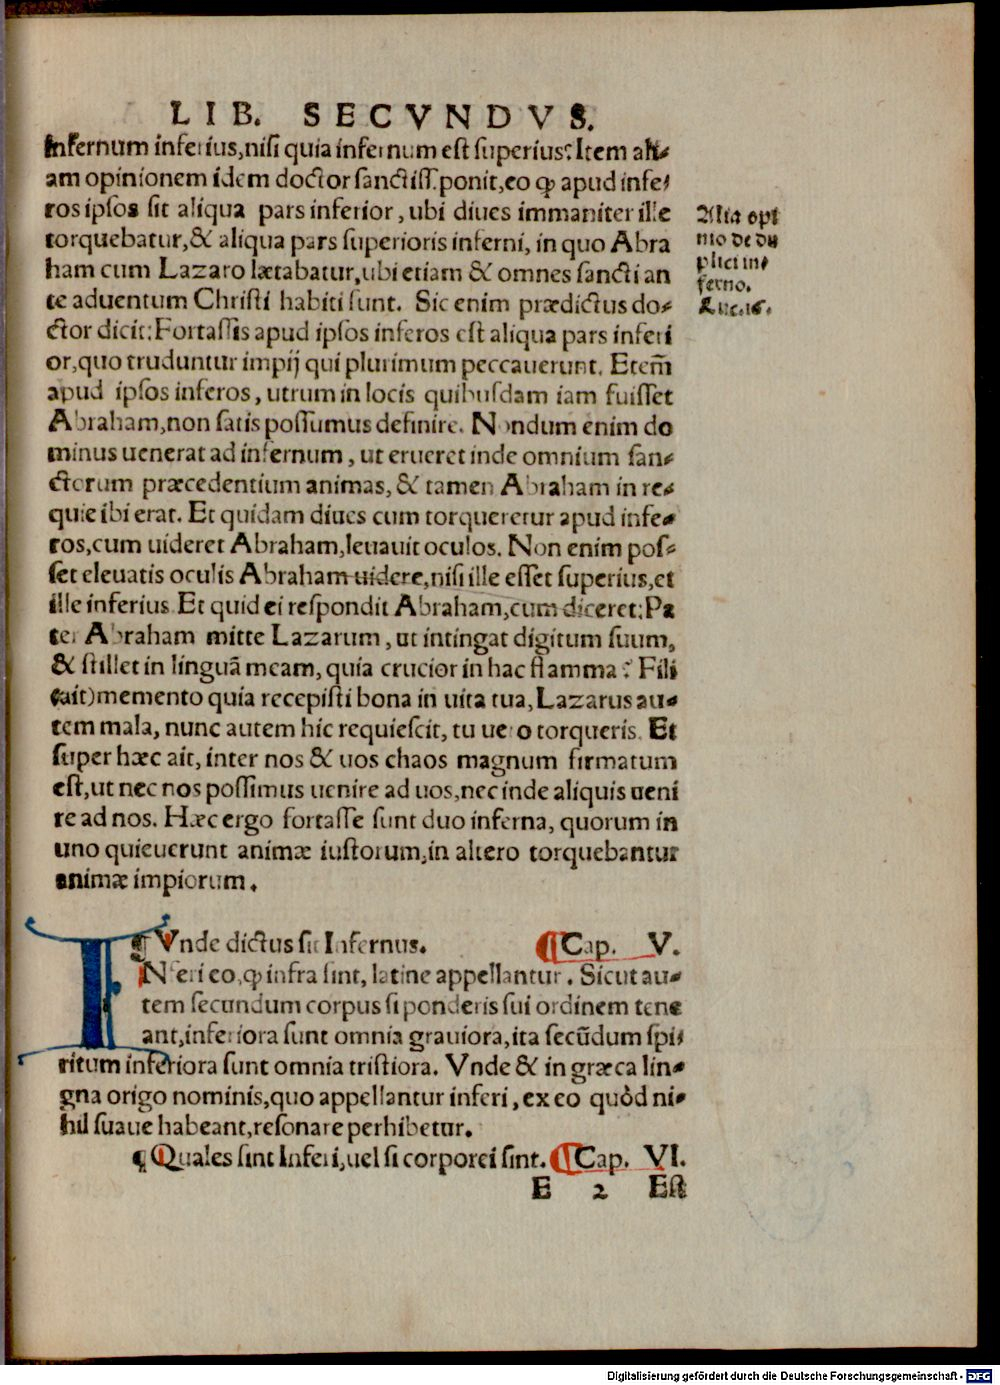 LIB. SECVNDVS.
infernum inferius,nisi quia infernum est superius? Item ali-
am opinionem idem doctor sanctiss. ponit, eo ꝙ apud infe-
ros ipsos sit aliqua pars inferior, ubi diues immaniter ille
torquebatur,& aliqua pars superioris inferni, in quo Abra
ham cum Lazaro lætabatur,ubi etiam & omnes sancti an
te aduentum Christi habiti sunt. Sic enim prædictus do-
ctor dicit:Fortassis apud ipsos inferos est aliqua pars inferi
or,quo truduntur impij qui plurimum peccauerunt. Etem̄
apud ipsos inferos, utrum in locis quibusdam iam fuisset
Abraham,non satis possumus definire. Nondum enim do
minus uenerat ad infernum, ut erueret inde omnium san-
ctorum præcedentium animas, & tamen Abraham in re-
quie ibi erat. Et quidam diues cum torqueretur apud infe-
ros,cum uideret Abraham,leuauit oculos. Non enim pos-
set eleuatis oculis Abraham uidere,nisi ille esset superius,et
ille inferius. Et quid ei respondit Abraham,cum diceret:Pa
ter Abraham mitte Lazarum, ut intingat digitum suum,
& stillet in linguā meam, quia crucior in hac flamma? Fili
(ait)memento quia recepisti bona in uita tua,Lazarus au-
tem mala, nunc autem hic requiescit, tu uero torqueris. Et
super hæc ait, inter nos & uos chaos magnum firmatum
est,ut nec nos possimus uenire ad uos,nec inde aliquis ueni
re ad nos. Hæc ergo fortasse sunt duo inferna, quorum in
uno quieuerunt animæ iustorum,in altero torquebantur
animæ impiorum.
Alia opi
nio de du
plici in-
ferno.
Luc.16.
¶ Vnde dictus sit Infernus. ¶Cap. V.
INferi eo,ꝙ infra sint, latine appellantur. Sicut au-
tem secundum corpus si ponderis sui ordinem tene
ant,inferiora sunt omnia grauiora,ita secūdum spi-
ritum inferiora sunt omnia tristiora. Vnde & in græca lin-
gna origo nominis,quo appellantur inferi, ex eo quòd ni-
hil suaue habeant,resonare perhibetur.
¶ Quales sint Inferi,uel si corporei sint. ¶Cap. VI.
E 2 Est
Digitalisierung gefördert durch die Deutsche Forschungsgemeinschaft - DFG